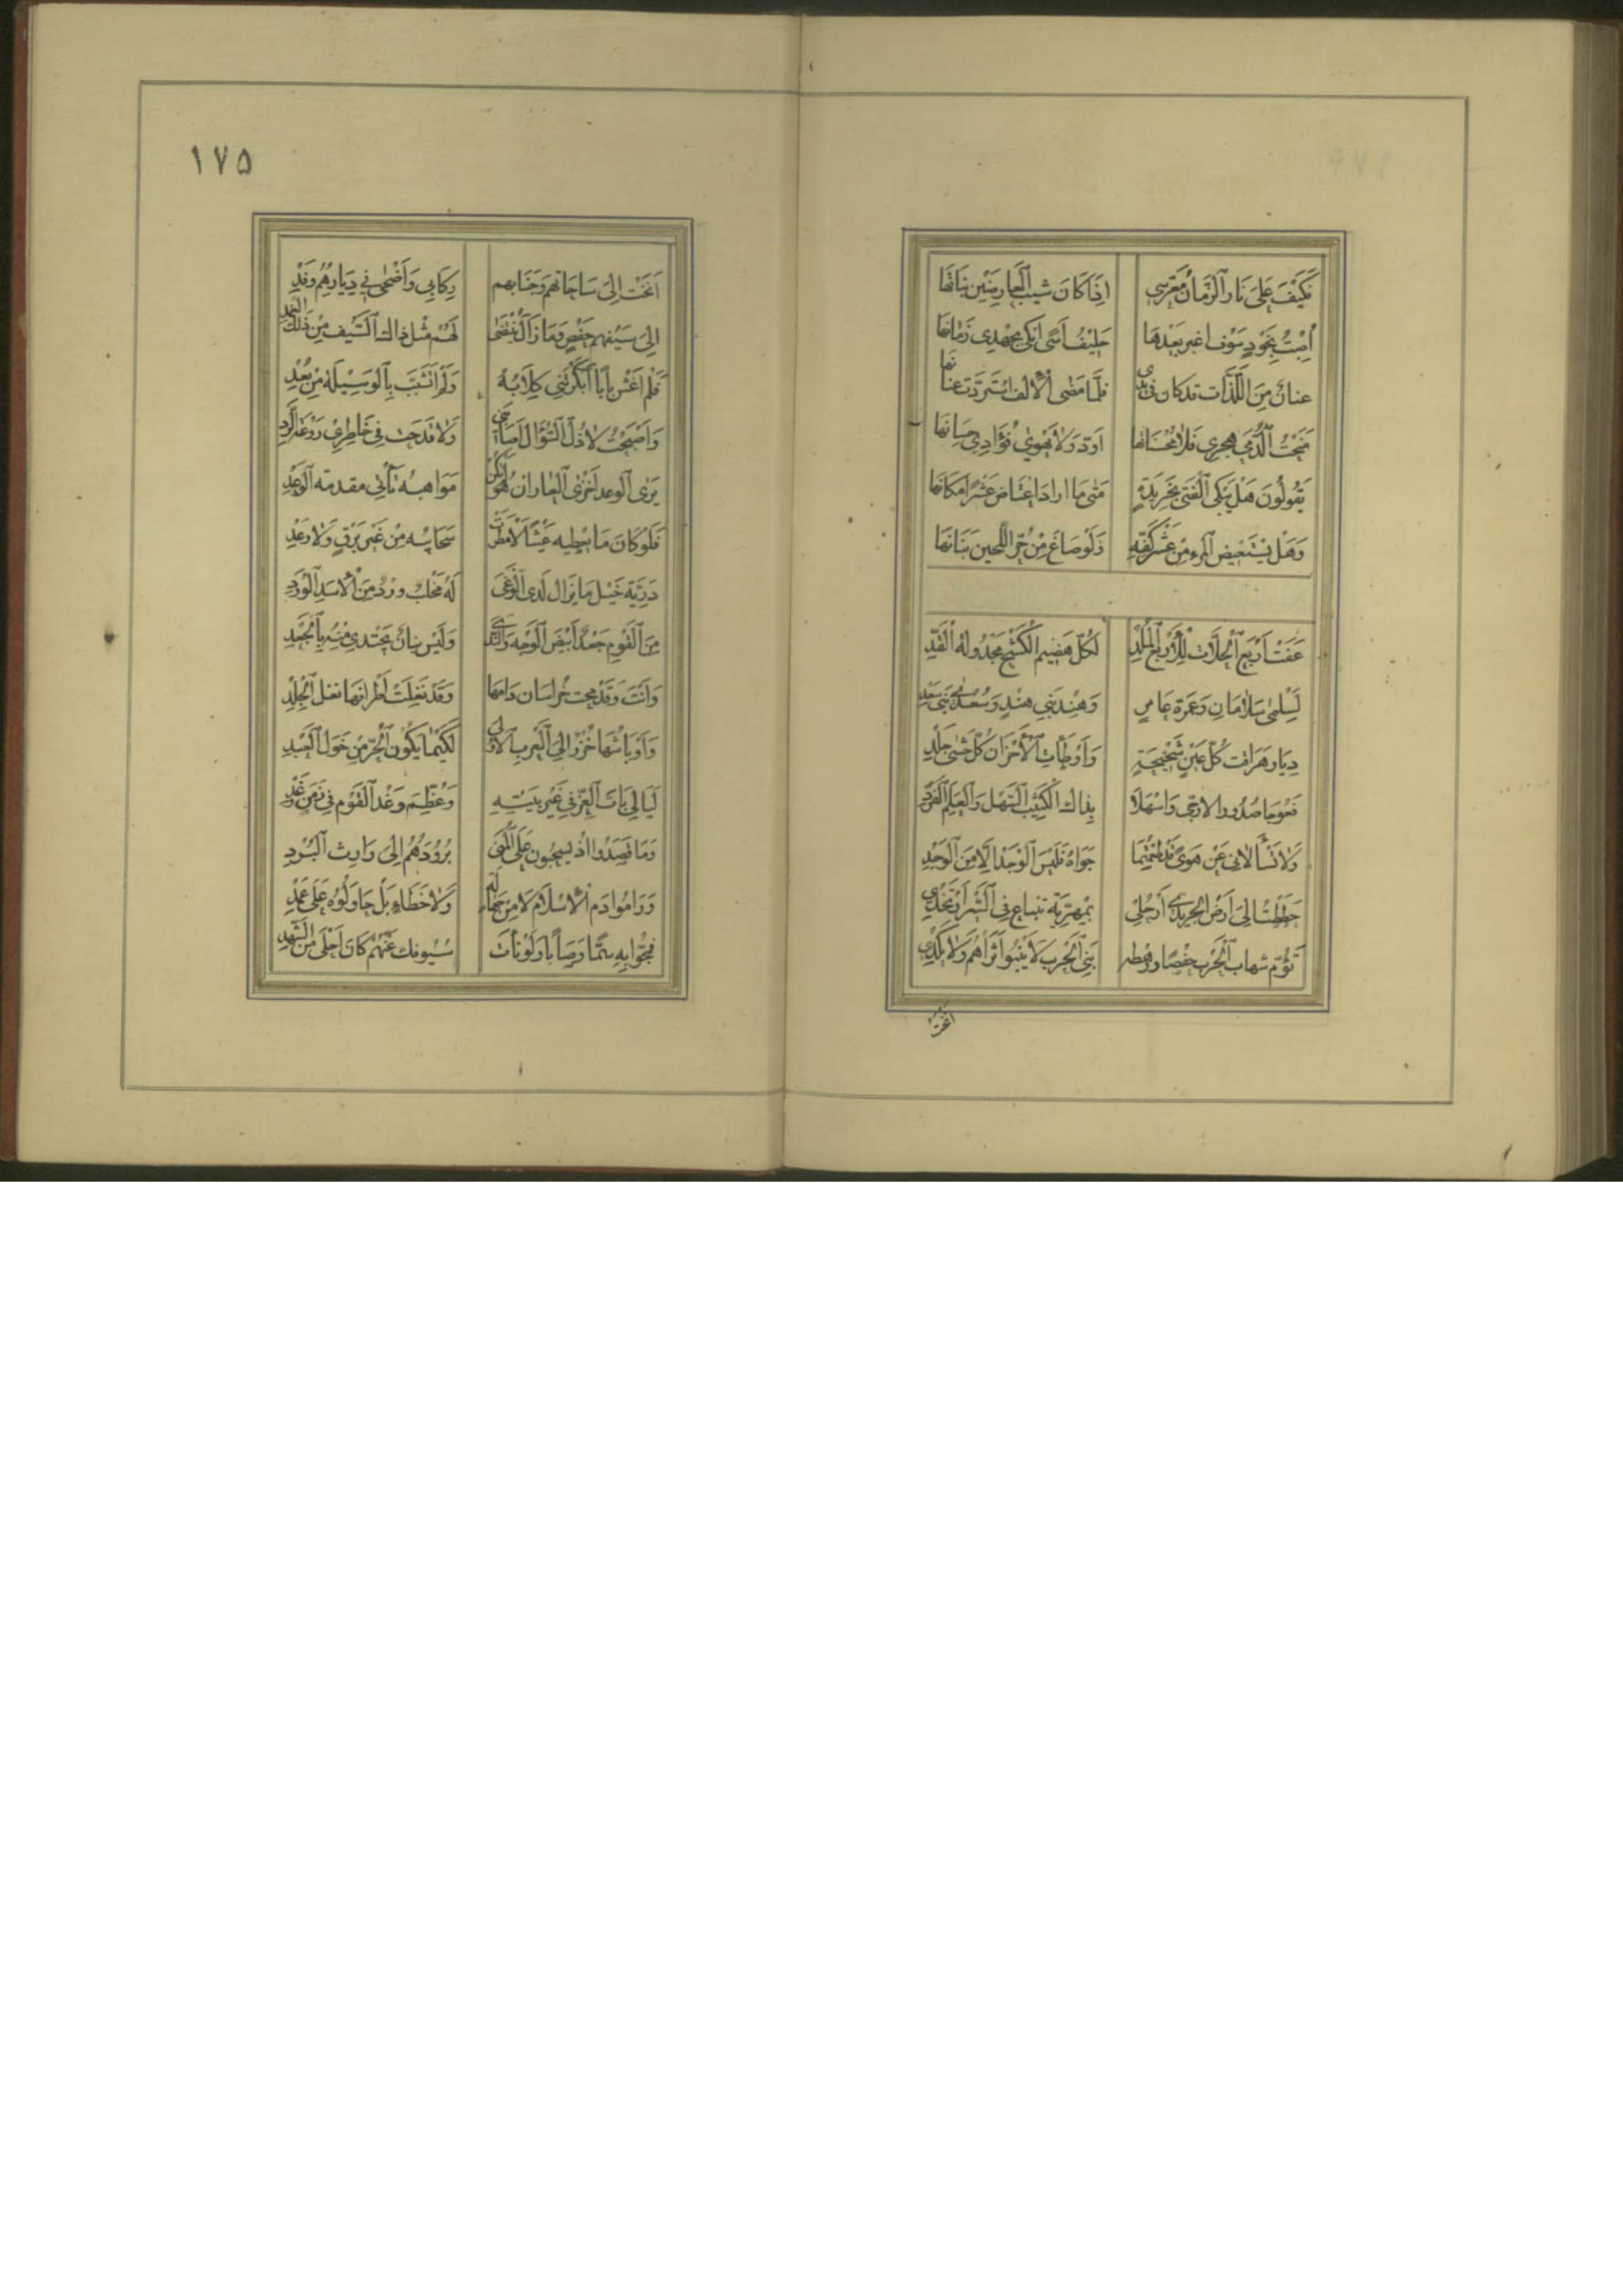 فَكَيْفَ عَلَى نَارِ الزَّمَانِ مُعَرَّسِي اِذَا كَانَ شَيْبُ الْعَارِضَيْنِ
اُصِبْتُ بِخَوْدٍ سَوْفَ اغبر بَعْدَهَا حَلِيفُ اَسًى اَبْكِي بِجُهْدِي زَمَانَهَا
عِنَانٌ مِنَ اللَّذَّاتِ قَدْ كَانَ فِي يَدِي فَلَمَّا مَضَى الْاِلْفُ اسْتَرَدَّتْ عِنَانَهَا
مَنَحْتُ الدُّمَى هَجْرِي فَلَا مُحْسِنَاتِهَا اَوَدُّ وَلَا يَهْوَى فُؤَادِي حِسَانَهَا
يَقُولُونَ هَلْ يَبْكِي الْفَتَى لِخَرِيدَةٍ مَتَى مَا ارَادَ اعْتَاضَ عَشْرًا مَكَانَهَا
وَهَلْ يَسْتَعِيضُ الْمَرْءُ مِنْ عَشْرِ كَفِّهِ وَلَوْ صَاغَ مِنْ حُرِّ اللُّجَيْنِ بَنَانَهَا
عَفَتْ اَرْبُعُ الْحِلَّاتِ لِلْاَرْبَعِ الْمُلْدِ لِكُلِّ هَضِيمِ الْكَشْحِ مَجْدُولَةِ الْقَدِّ
لِسَلْمَى سَلَامَانٍ وَعَمْرَةِ عَامِرٍ وَهِنْدِ بَنِي هِنْدٍ وَسُعْدَى بَنِي سَعْدِ
دِيَارٌ هَرَاقَتْ كُلَّ عَيْنٍ شَحِيحَةٍ وَاَوْطَاَتِ الْاَحْزَانَ كُلَّ حَشًى جَلْدِ
فَعُوجَا صُدُورَ الارحبي وَاَسْهِلَا بِذَاكَ الْكَثِيبِ السَّهْلِ وَالْعَلَمِ الْفَرْدِ
وَلَا تَسْاَلَانِي عَنْ هَوًى قَدْ طَعِمْتُمَا جَوَاهُ فَلَيْسَ الْوَجْدُ اِلَّا مِنَ الْوَجْدِ
حَطَطْتُ اِلَى اَرْضِ الجديدي اَرْحُلِي بِمَهْرِيَّةٍ تَنْبَاعُ فِي السَّيْرِ اَوْ تَخْدِي
تَؤُمُّ شِهَابَ الْحَرْبِ حَفْصًا ورهطه بَنِي الْحَرْبِ لَا يَنْبُو ثَرَاهُمْ وَلَا يُكْدِي
اَنَخْتُ
١٧٥
اَنَخْتُ اِلَى سَاحَاتِهِمْ وَجَنَابِهِمْ رِكَابِي وَاَضْحَى فِي دِيَارِهِمُ وَفْدِي
اِلَى سَيْفِهِمْ حَفْصٍ وَمَا زَالَ يُنْتَضَى لَهُمْ مِثْلُ ذَاكَ السَّيْفِ مِنْ ذَلِكَ الْغِمْدِ
فَلَمْ اَغْشَ بَابًا اَنْكَرَتْنِي كِلَابُهُ وَلَمْ اَتَشَبَّثْ بِالْوَسِيلَةِ مِنْ بُعْدِ
وَاَصْبَحْتُ لَا ذُلُّ السُّؤَالِ اَصَابَنِي وَلَا قَدَحَتْ فِي خَاطِرِي رَوْعَةُ الرَّدِّ
يَرَى الْوَعْدَ اَخْزَى الْعَارِ اِنْ هُوَ لَمْ تَكُنْ مَوَاهِبُهُ تَأْتِي مقدمة الْوَعْدِ
فَلَوْ كَانَ مَا يُعْطِيهِ غَيْثًا لَاَمْطَرَتْ سَحَائِبُهُ مِنْ غَيْرِ بَرْقٍ وَلَا رَعْدِ
دَرِيَّةُ خَيْلٍ مَا يَزَالُ لَدَى الْوَغَى لَهُ مِخْلَبٌ وَرْدٌ مِنَ الْاَسَدِ الْوَرْدِ
مِنَ الْقَوْمِ جَعْدٌ اَبْيَضُ الْوَجْهِ وَالنَّدَى وَلَيْسَ بَنَانٌ يُجْتَدَى مِنْهُ بِالْجَعْدِ
وَاَنْتَ وَقَدْ مَجَّتْ خُرَاسَانُ دَاءَهَا وَقَدْ نَغِلَتْ اَطْرَافُهَا نَغَلَ الْجِلْدِ
وَاَوْبَاشُهَا خُزْرٌ اِلَى الْعَرَبِ الْاُولَى لِكَيْمَا يَكُونَ الْحُرُّ مِنْ خَوَلِ الْعَبْدِ
لَيَالِيَ بَاتَ الْعِزُّ فِي غَيْرِ بَيْتِهِ وَعُظِّمَ وَغْدُ الْقَوْمِ فِي زَمَنٍ وَغْدِ
وَمَا قَصَدُوا اِذْ يَسْحَبُونَ عَلَى الْمُنَى بُرُودَهُمُ اِلَى وَارِثِ الْبُرْدِ
وَرَامُوا دَمَ الْاِسْلَامِ لَا مِنْ جَهَالَةٍ وَلَا خَطَاءٍ بَلْ حَاوَلُوهُ عَلَى عَمْدِ
فَمَجُّوا بِهِ سَمًّا وَصَابًا وَلَوْ نَأَتْ سُيُوفُكَ عَنْهُمْ كَانَ اَحْلَى مِنَ الشَّهْدِ